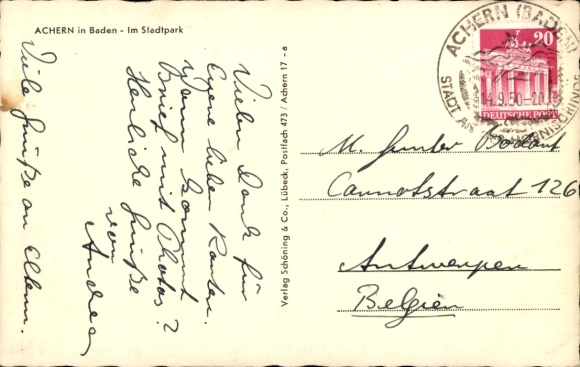 ACHERN in Baden - Im Stadtpark
Vielen Dank für
Eueren lieben Karten.
Wann kommt
Brief mit Photos?
Herzliche Grüße
von
Andrea
Viele Grüße an Eltern.
Verlag Schöning & Co., Lübeck, Postfach 473 / Achern 17 - a
ACHERN (BADEN)
14.9.50-20
STADT AN DER HORNISGRINDE
20
DEUTSCHE POST
M. Gunter
Carnotstraat 126
Antwerpen
Belgien